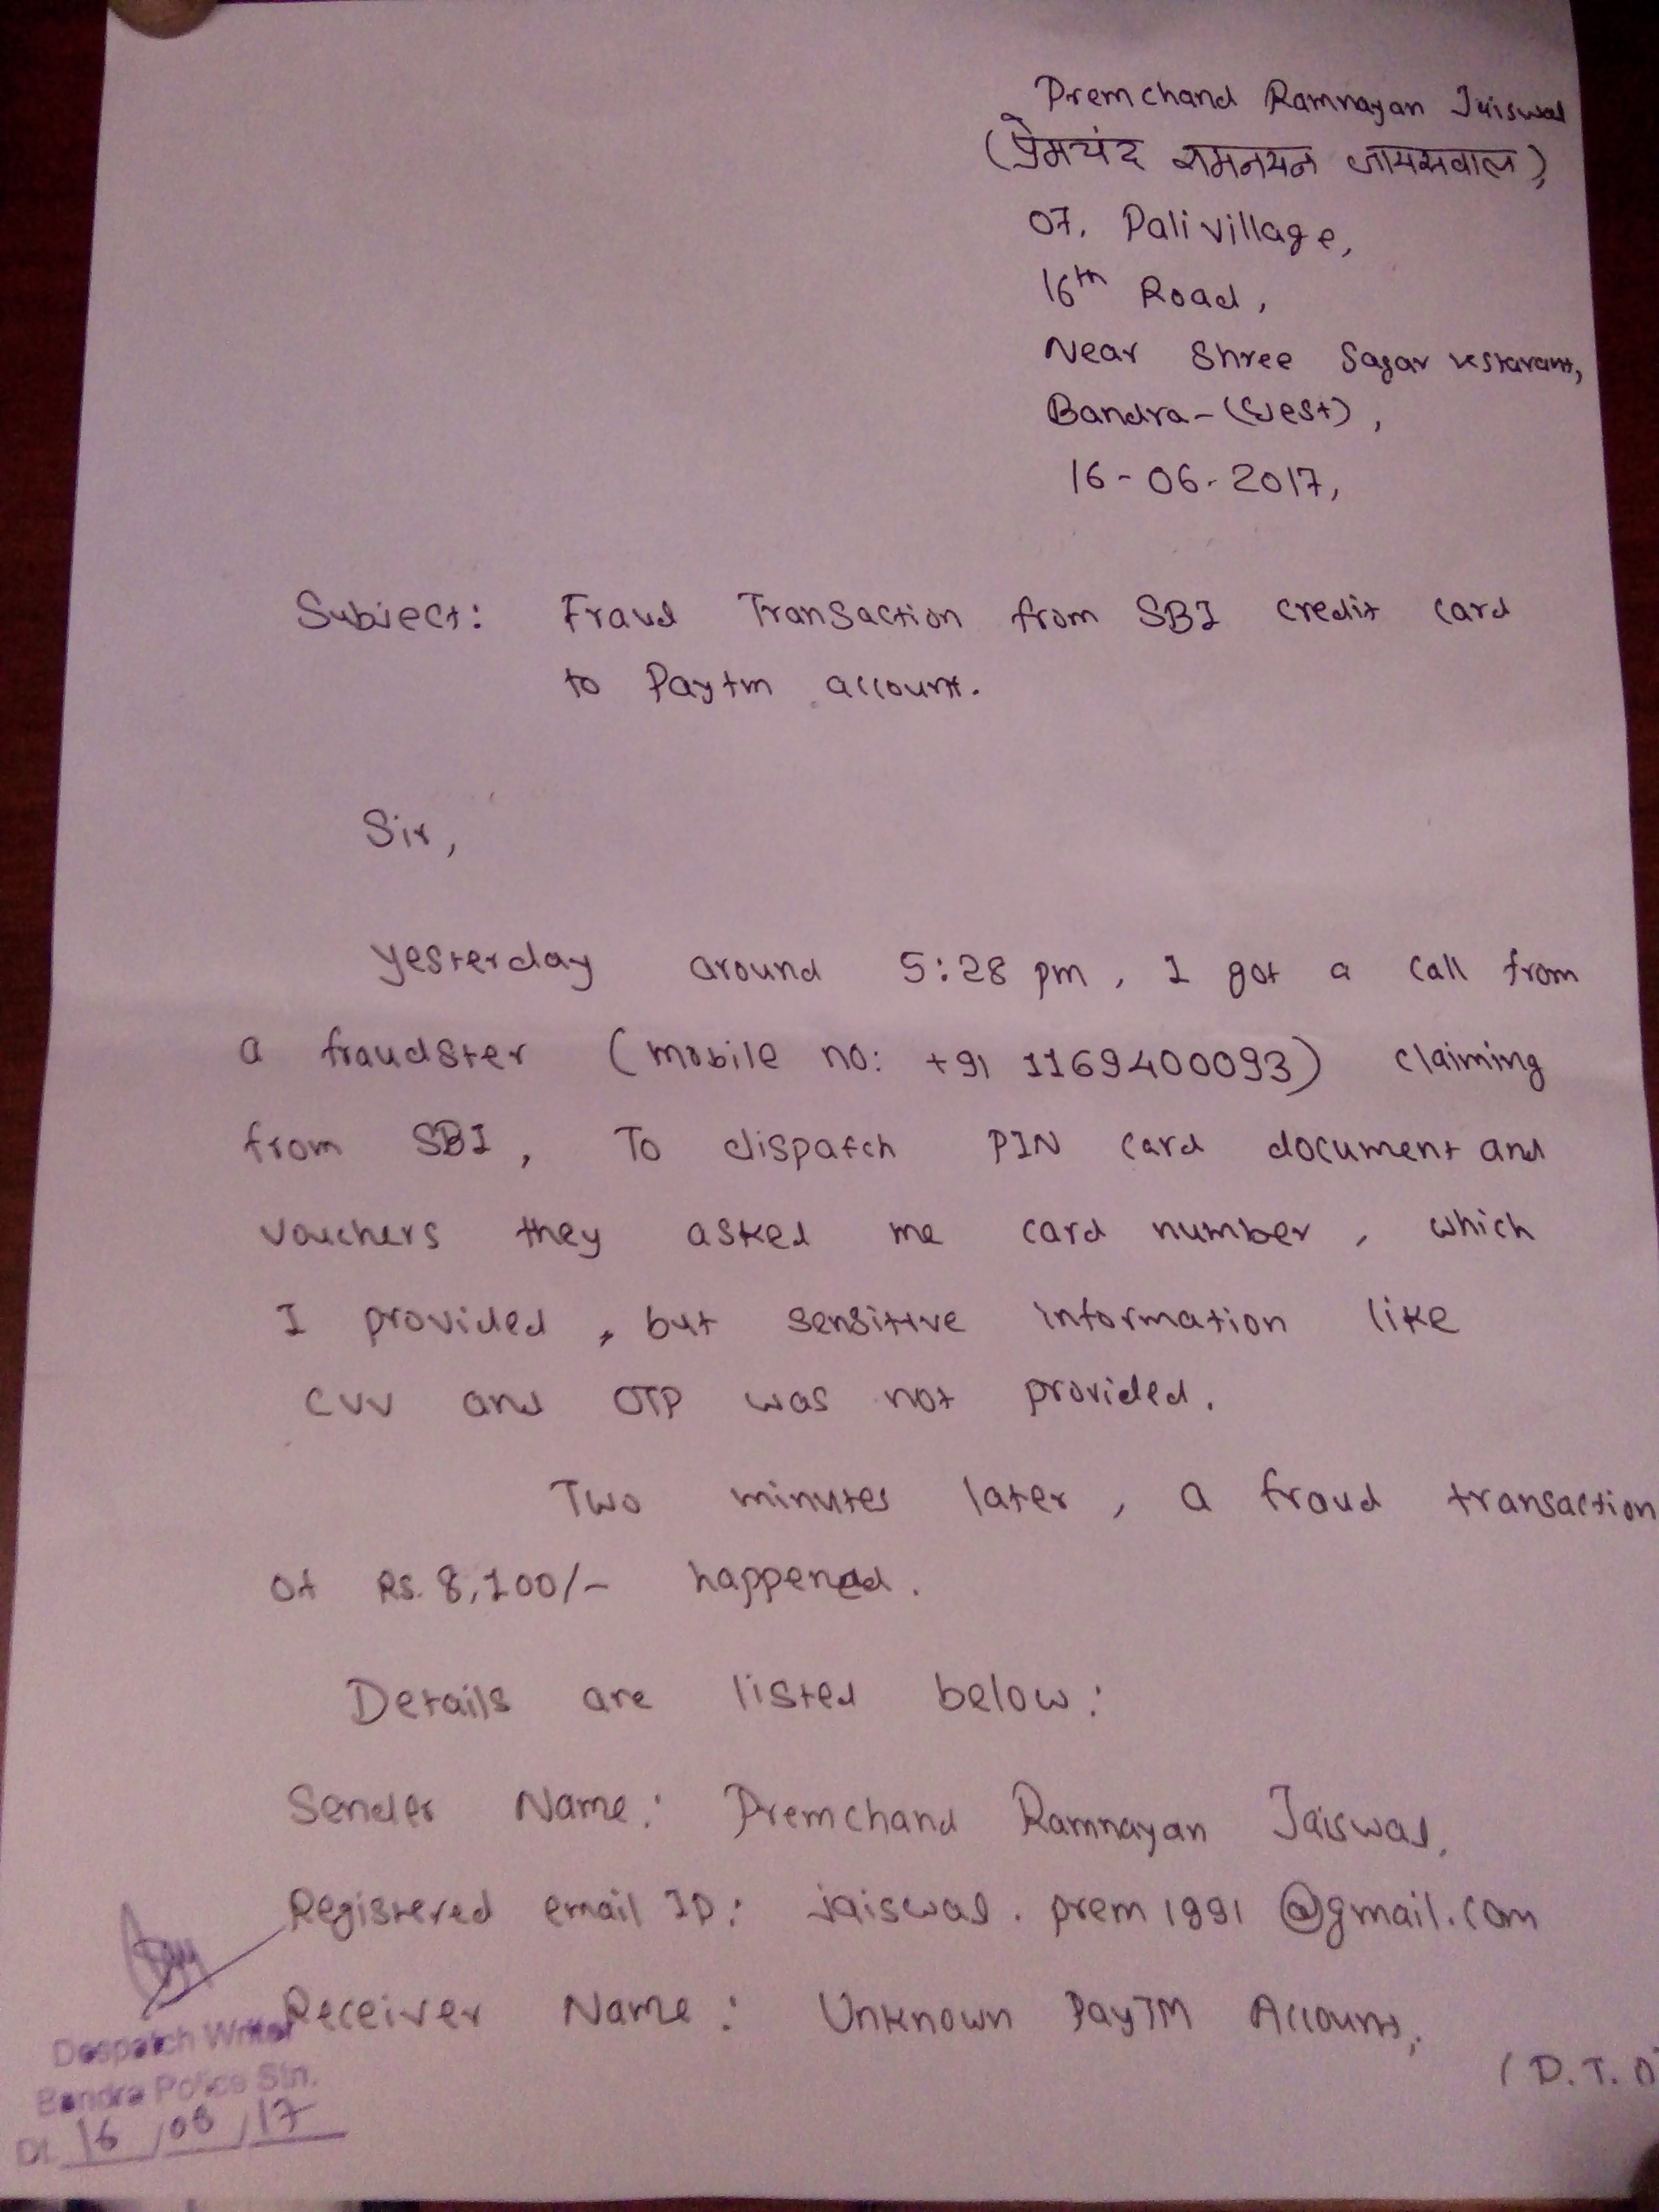 Premchand Ramnayan Jaiswal
(प्रेमचंद रामनयन जायसवाल),
07, Pali village,
16th Road,
Near Shree Sagar restarant,
Bandra-(West),
16-06-2017,
Subject: Fraud Transaction from SBI credit card
to Paytm account.
Sir,
Yesterday around 5:28 pm, I got a call from
a fraudster (mobile no: +91 1169400093) claiming
from SBI, To dispatch PIN card document and
vouchers they asked me card number, which
I provided, but sensitive information like
CVV and OTP was not provided.
Two minutes later, a fraud transaction
of Rs. 8,100/- happened.
Details are listed below:
Sender Name: Premchand Ramnayan Jaiswal,
Registered email ID: jaiswal.prem1991@gmail.com
Receiver Name: Unknown PayTM Account,
(P.T.O
Despatch Writer
Bandra Police Stn.
Dt. 16/06/17